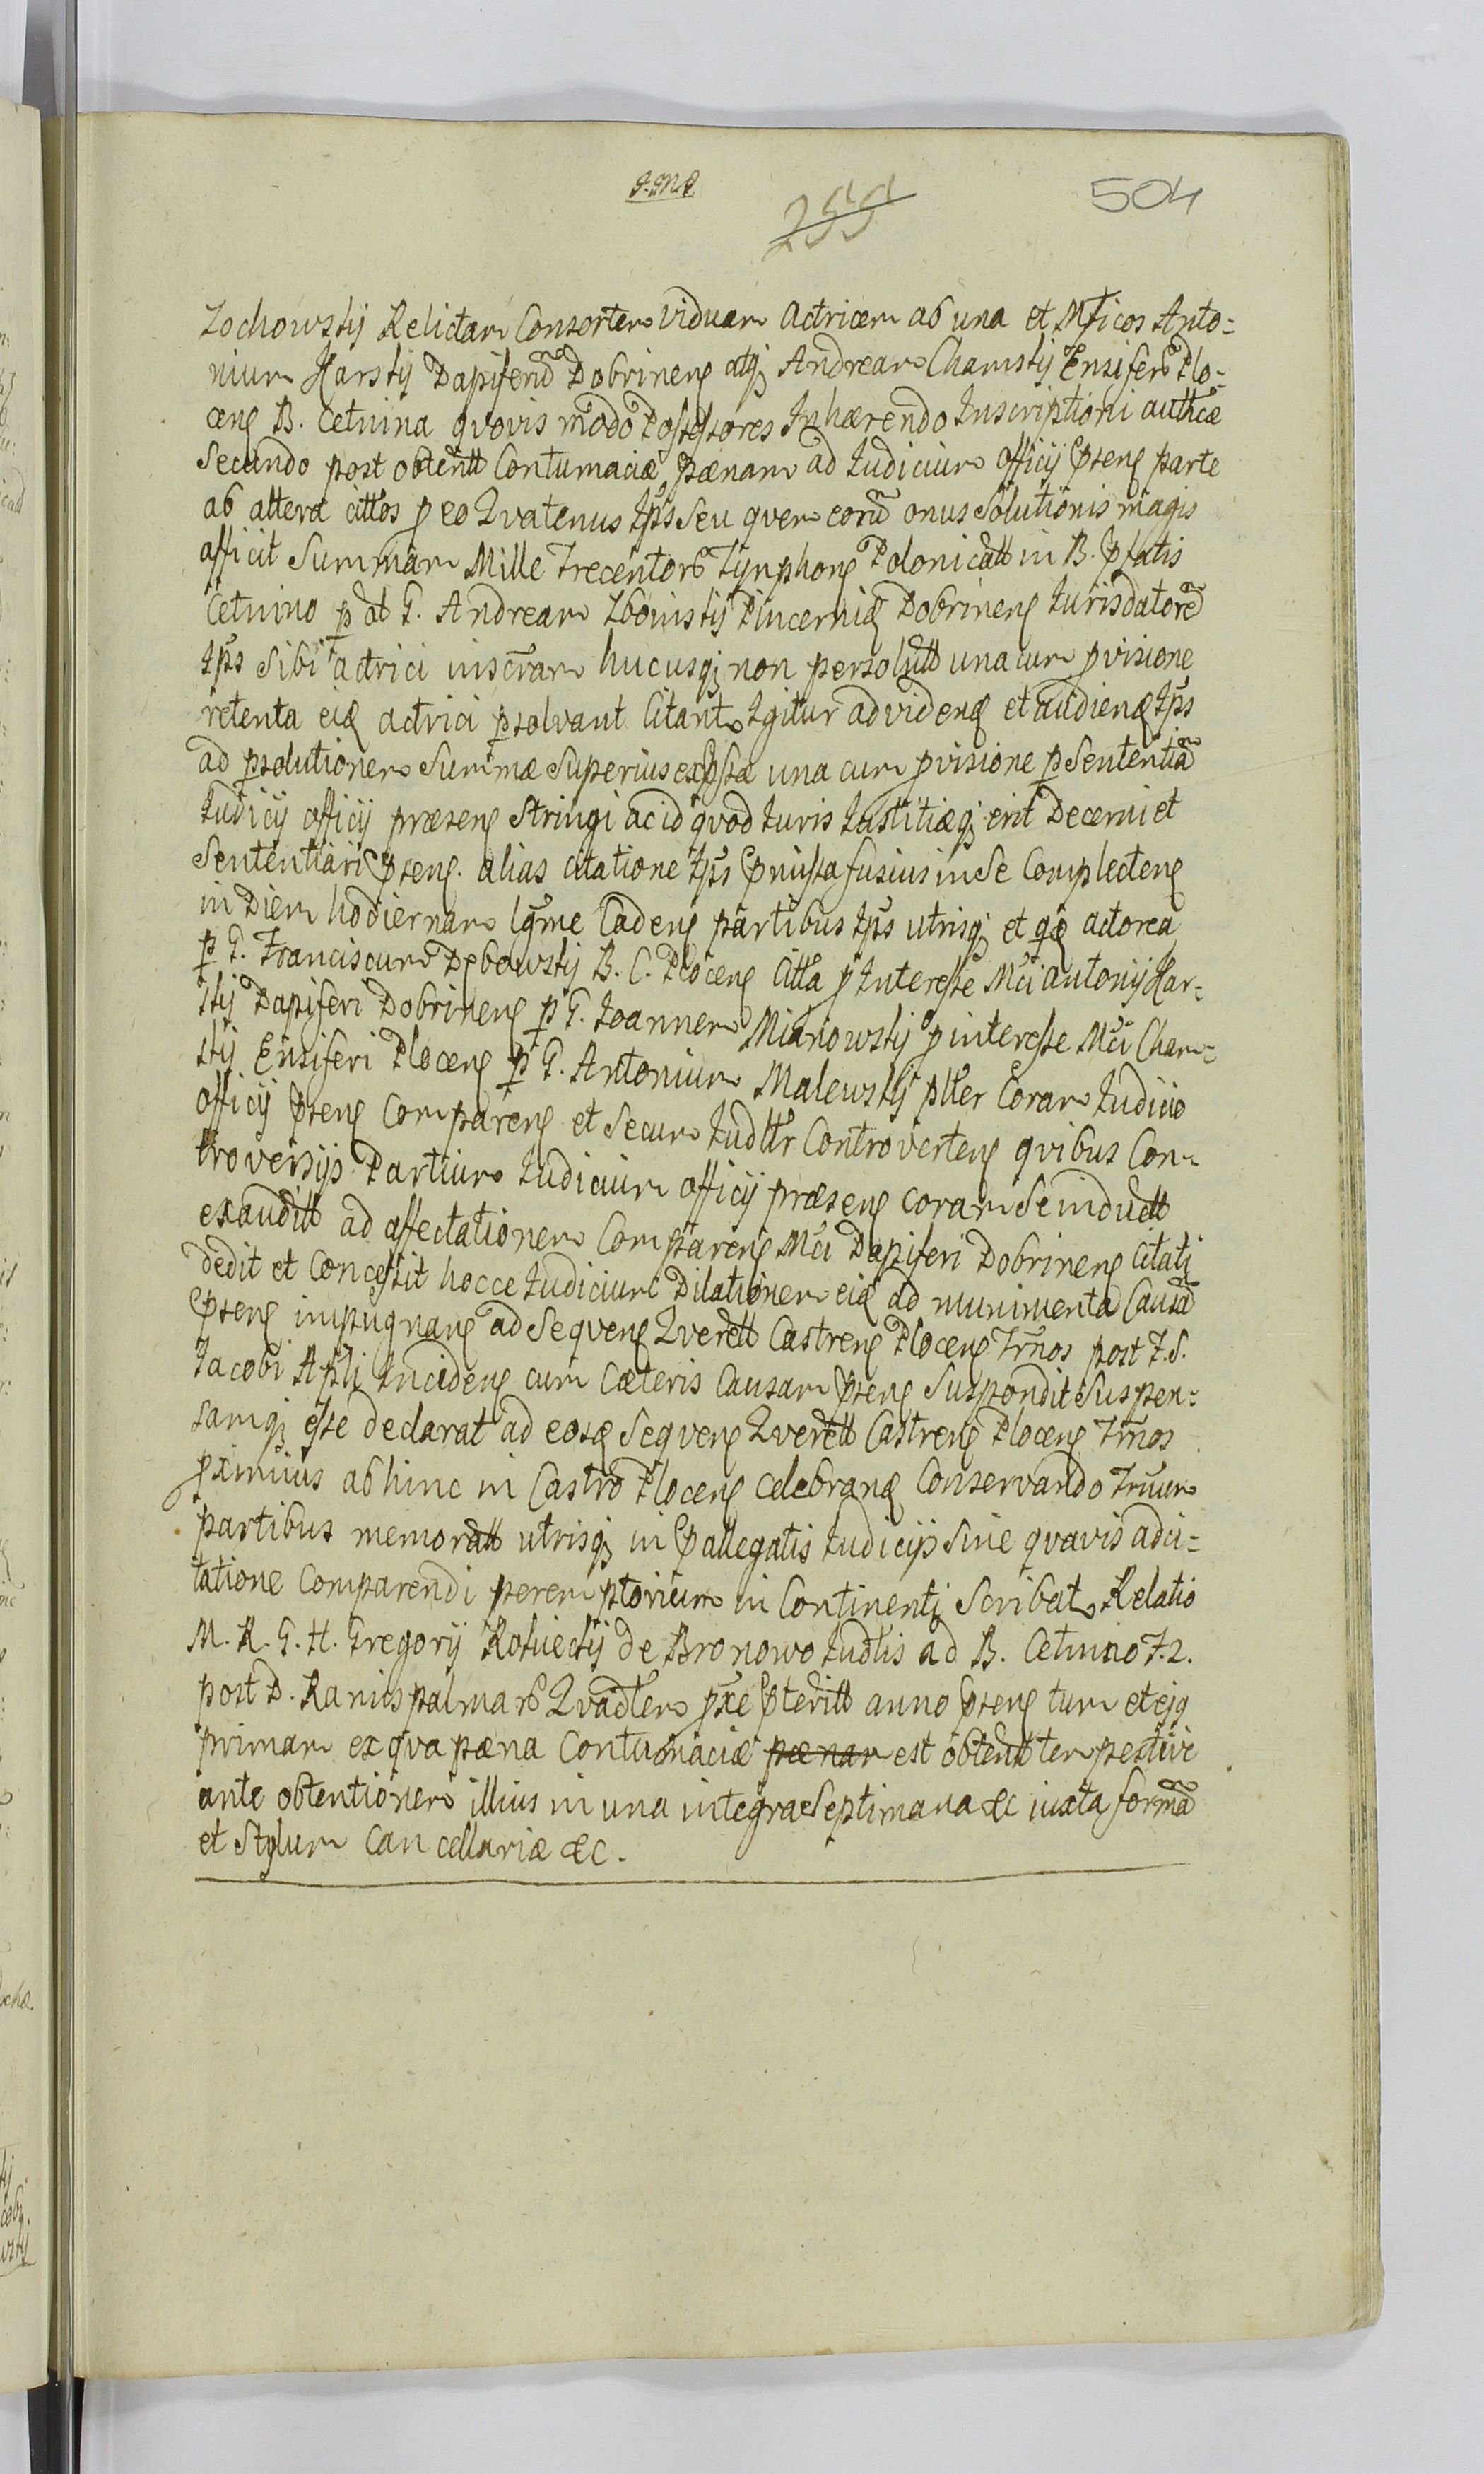 504
Zochowskij Relictam Consortem Viduam Actricem ab una et Mficos Anto=
nium Karskij Dapiferũ Dobrinens atq; Andream Chamskij Ensiferũ Plo=
cens B. Cetnina qvovis modo Possessores Inhærendo Inscriptioni authcæ
Secundo post obtentt Contumaciæ pænam ad Iudicium officij pntens parte
ab altera cittos p eo Qvatenus Ips̃ Seu qvem eorũ onus Solutionis magis
afficit Summam Mille Trecentorũ Tynphons Polonicatt in B. pfatis
Cetnino p ot G. Andream Zboinskij Pincernid Dobrinens Iurisdatorẽ
Ips̃ Sibi actrici inscram hucusq; non persolutt una cum pvisione
retenta eid actrici psolvant Citant Igitur ad videnд et audienд Ips̃
ad psolutionem Summæ Superius expssæ una cum pvisione p Sententiã
Iudicij officij præsens Stringi ac id qvod Iuris Iustitiæq; erit Decerni et
Sententiari ptens. alias citatione Ips̃ pmissa fusius in Se Complectens
in Diem hodiernam lgme Cadens partibus Ips̃ utrisq; et qd actorea
p G. Franciscum Dębowskij B. C. Plocens Citta p Interesse Mci Antonij Kar=
skij Dapiferi Dobrinens p G. Ioannem Mianowskij p interesse Mci Cham=
skij Ensiferi Plocens p G. Antonium Malewskij pltter Coram Iudicio
officij ptens Comparens et Secum Iudttr Controvertens qvibus Con=
troversijs Partium Iudicium officij præsens coram Se inductt
exauditt ad affectationem Comparens Mci Dapiferi Dobrinens Citati
dedit et Concessit hocce Iudicium Dilationem eid ad munimenta Causã
ptens impugnans ad Seqvens Qverett Castrens Plocens Trnos post F. S.
Iacobi Aptli Incidens cum Cæteris Causam ptens Suspendit Suspen=
samq; esse declarat ad eosd Seqvens Qverett Castrens Plocens Trnos
pximius ab hinc in Castro Plocens celebranд Conservando Trnum
partibus memoratt utrisq; in pallegatis Iudicijs Sine qvavis adci=
tatione Comparendi peremptorium in Continenti Scribat Relatio
M. R. G. H. Gregorij Rokickij de Bronowo Iudtis ad B. Cetnino F. 2.
post D. Ramispalmarũ Qvadtem pxe pteritt anno ptens tum et ejq
primam ex qva pæna Contumaciæ pænam est obtentt tempestive
ante obtentionem illius in una integra Septimana &c iuxta formã
et Stylum Cancellariæ &c.